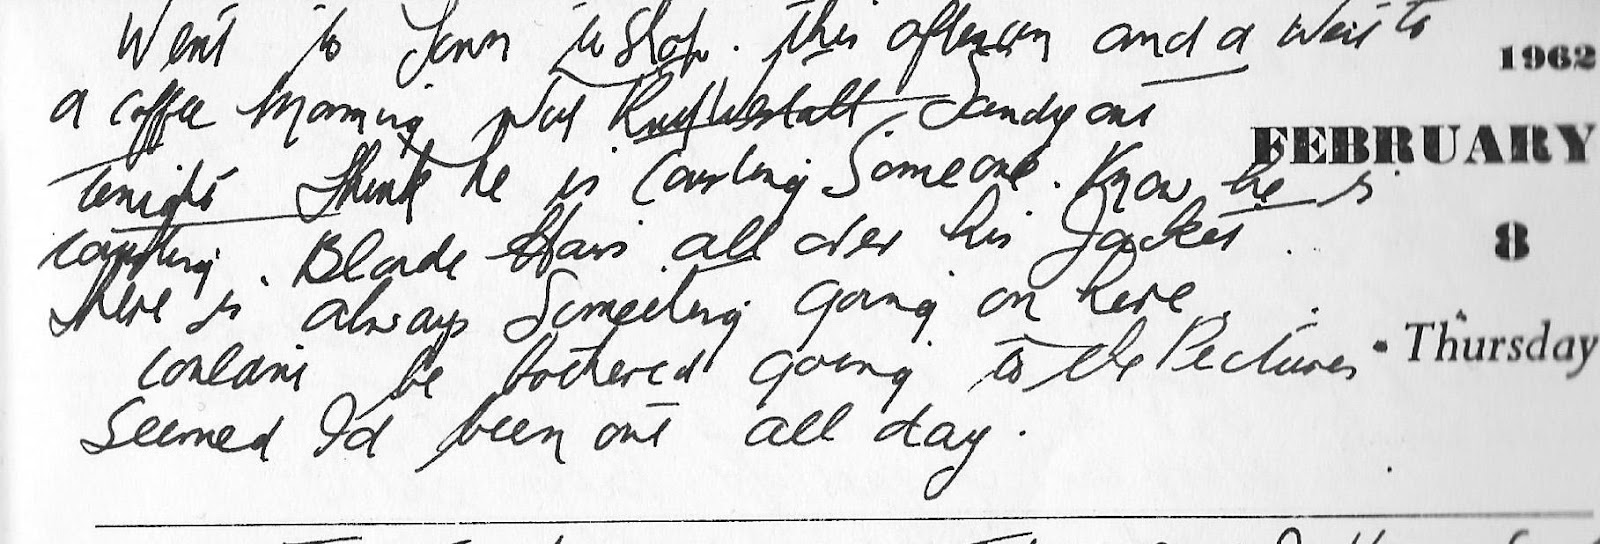 Went to Town to Shop. this afternoon and a visit to
1962
a coffee morning with Sandy out
FEBRUARY
tonight Think he is courting Someone. Know he is
8
courting. Blonde Hairs all over his Jacket.
There is always Something going on here.
Thursday
couldnt be bothered going to the Pictures
Seemed I'd been out all day.